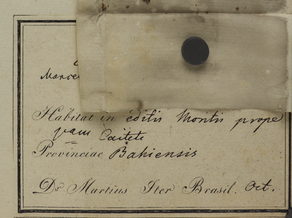 Habitat in editis Montis prope
Caitete
Provinciae Bahiensis
Dr Martius Iter Brasil. Oct.